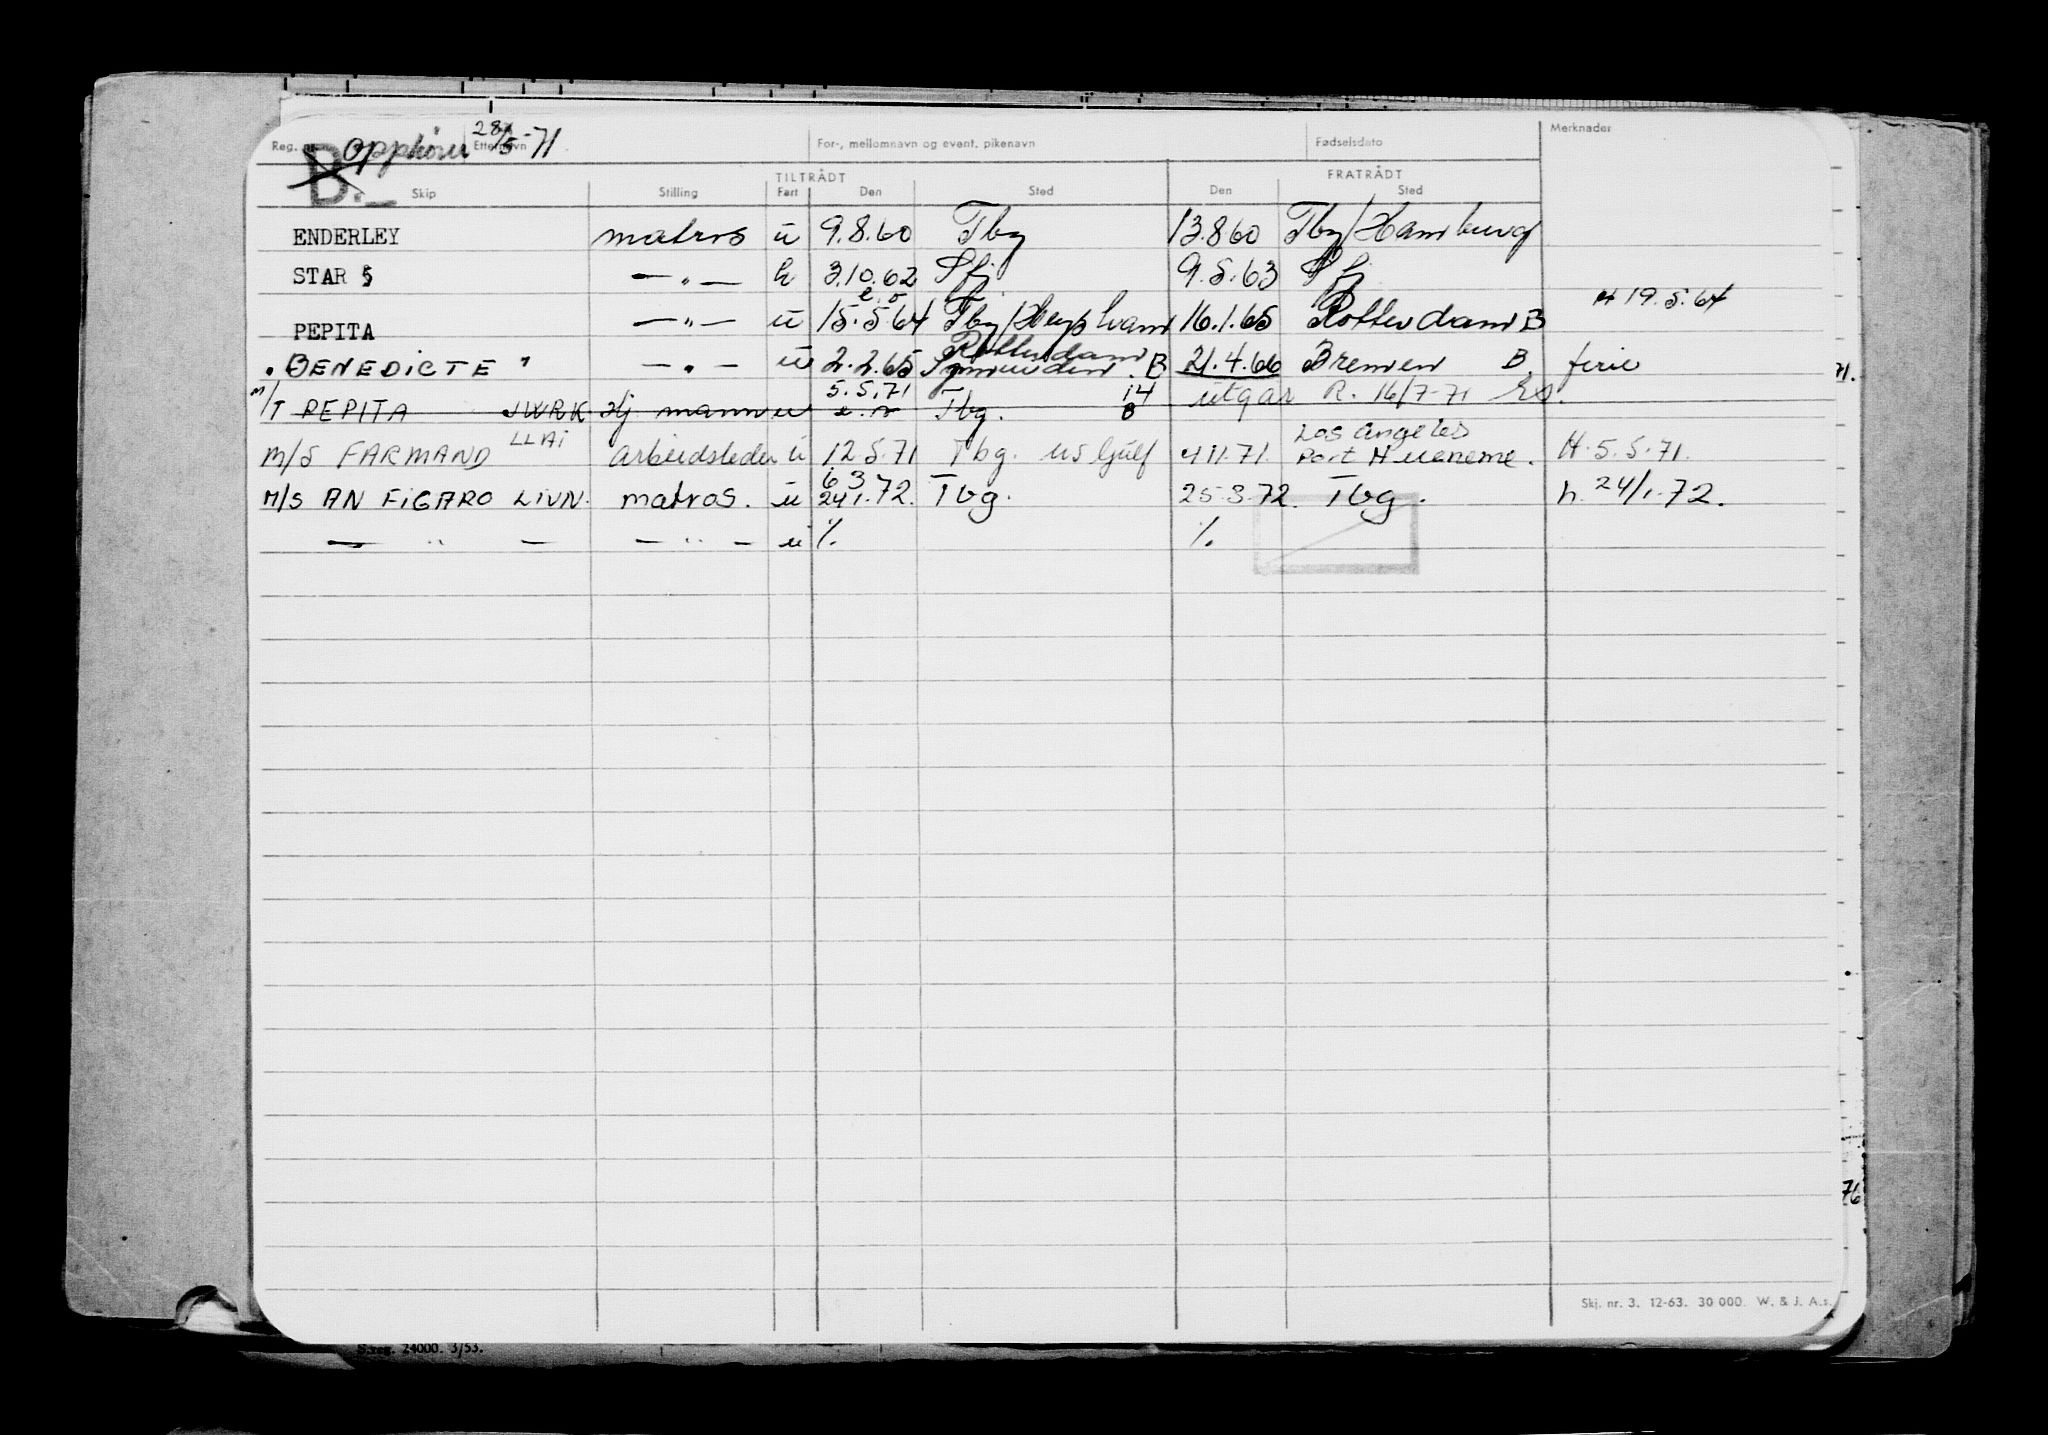 Reg. nr. Opphører Etternavn 28/5-71 For-, mellomnavn og event. pikenavn Fødselsdato Merknader
B.
TILTRÅDT FRATRÅDT
Skip Stilling Fart Den Sted Den Sted
ENDERLEY matros u 9.8.60 Tbg 13.8.60 Tbg/Hamburg
STAR 5 — " — h 3.10.62 Sfj 9.5.63 Sfj
PEPITA — " — u 15.5.64 Tbg/ 16.1.65 Rotterdam B H 19.5.64
Rotterdam
BENEDICTE " — " — u 2.2.65 B 21.4.66 Bremen B. ferie
M/T PEPITA JWRK Hj mann u 5.5.71 Tbg. 14 8 utgår R. 16/7-71
M/S FARMAND LLAI arbeidsleder u 12.5.71 Tbg. us Gulf 4.11.71. Los Angeles Port Hueneme. H. 5.5.71.
6 3
M/S AN FIGARO LIVN. matros. u 24.1.72. Tbg. 25.3.72. Tbg. h. 24/1.72.
— " — — " — u %. %.
71.
76
Skj. nr. 3. 12-63. 30 000. W. & J. A.s.
S.reg. 24000. 3/53.